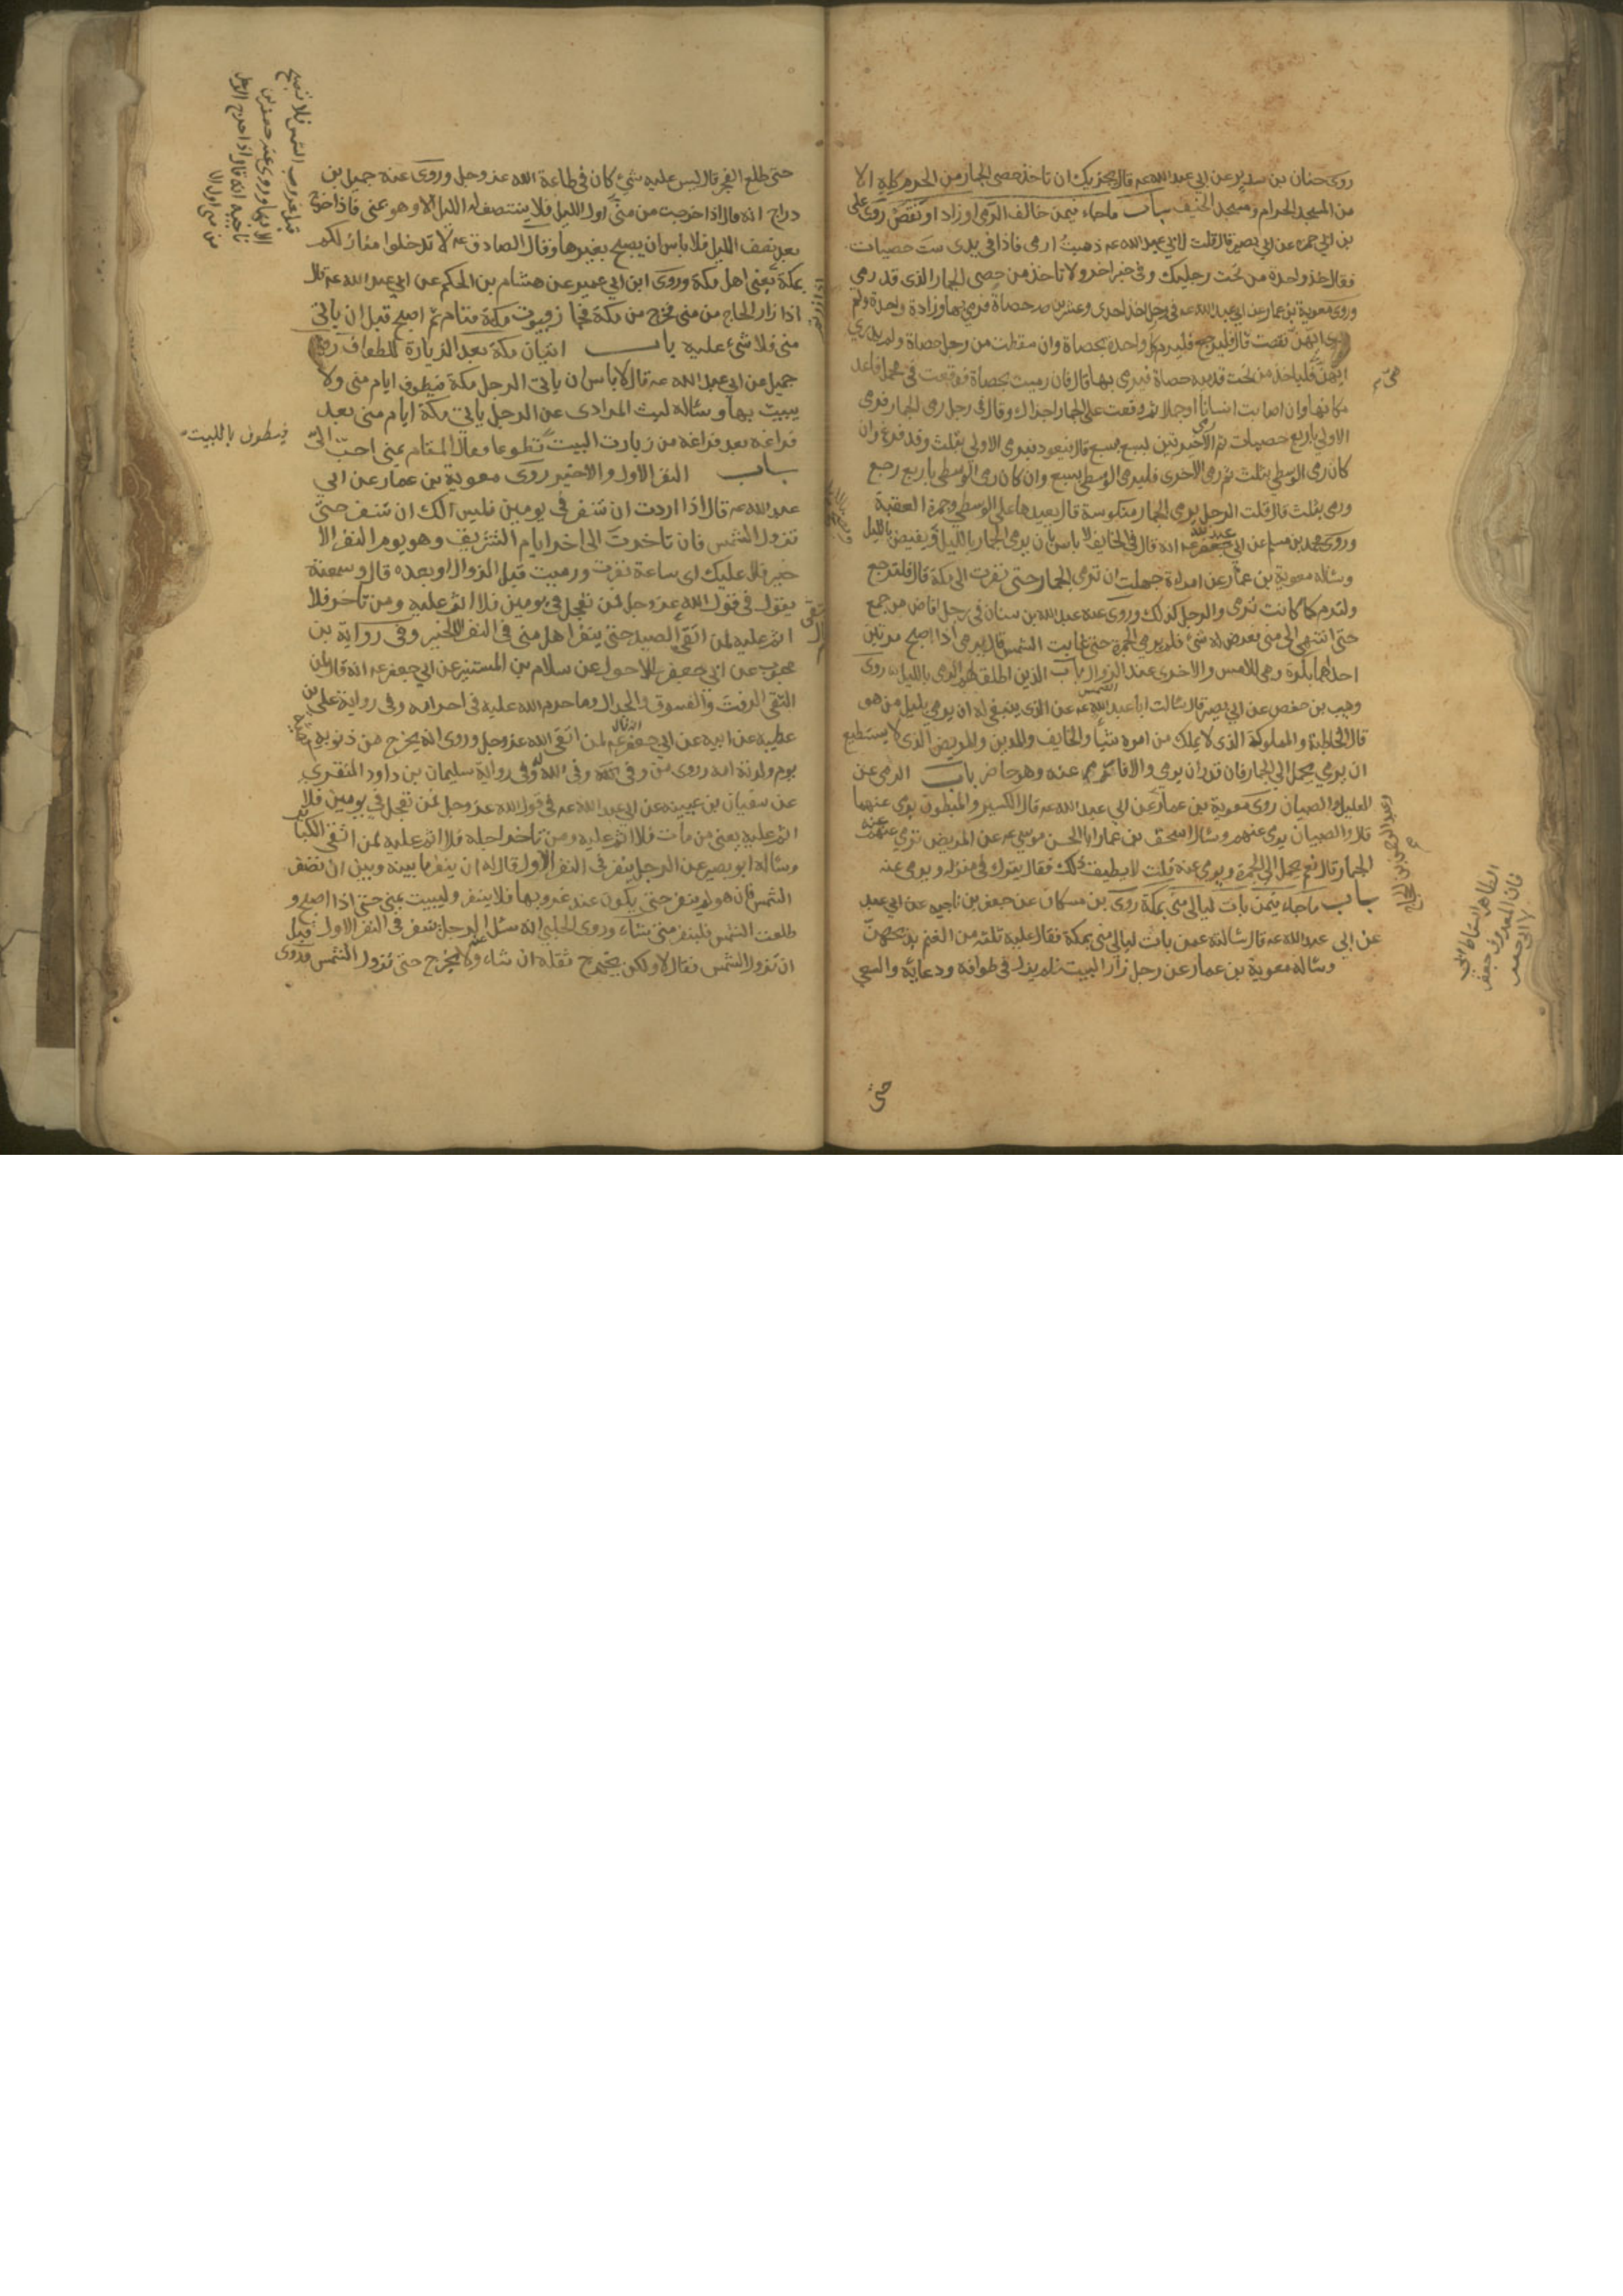 روى حنان بن سدير عن ابي عبد الله عه قال يجزيك ان تاخذ حصى الجمار من الحرم كله الا
من المسجد الحرام ومسجد الخيف باب ماجاء فيمن خالف الرمي او زاد او نقص روى على
بن ابي حمزه عن ابي بصير قال قلت لابي عبد الله عه ذهبت ارمى فاذا في يدى ست حصيات
فقال خذ واحدة من تحت رجليك وفى خبر اخر ولا تاخذ من حصى الجمار الذى قد رمى
وروى معوية بن عمار عن ابي عبد الله عه في رجل اخذ احدى وعشرين حصاة فرمى بها وزادة واحدة ولم
يدر ايهن نقصت قال فليرجع فليرم كل واحدة بحصاة وان سقطت من رجل حصاة ولم يدرى
ايهن فلياخذ من تحت قدميه حصاة فيرمى بها قال فان رميت بحصاة فوقعت في محمل فاعد
مكانها وان اصابت انسانا او جملا ثم وقعت على الجمار اجزاك وقال في رجل رمى الجمار فرمى
الاولى باربع حصيات ثم رمى الاخيرتين بسبع بسبع قال يعود فيرمى الاولى بثلث وقد فرغ وان
كان رمى الوسطى بثلث ثم رمى الاخرى فليرمى الوسطى بسبع وان كان رمى الوسطى باربع رجع
ورمى بثلث قال قلت الرجل يرمى الجمار منكوسة قال يعيدها على الوسطى وجمرة العقبة
وروى محمد بن مسلم عن ابي عبد الله عه انه قال في الخايف لا باس بان يرمى الجمار بالليل ويفيض بالليل
وسئاله معوية بن عمار عن امراة جهلت ان ترمى الجمار حتى نفرت الى مكة قال فلترجع
ولترم كما كانت ترمى والرجل كذلك وروى عنه عبد الله بن سنان في رجل افاض من جمع
حتى انتهى الى منى فعرض له شئ فلم يرمى الجمرة حتى غابت الشمس قال يرمى اذا اصبح مرتين
احداهما بكرة وهى للامس والاخرى عند الزوال باب الذين اطلق لهم الرمى بالليل روى
وهيب بن حفص عن ابي بصير قال سئالت ابا عبد الله عه عن الذى ينبغى له ان يرمى بليل من هو
قال الحاطبة والمملوك الذى لا يملك من امره شيأ والخايف والمدين والمريض الذى لا يستطيع
ان يرمي يحمل الى الجمار فان قدر ان يرمى والا فارم عنه وهو حاضر باب الرمى عن
العليل والصبيان روى معوية بن عمار عن ابي عبد الله عه قال الكسير والمبطون يرمى عنهما
قال والصبيان يرمى عنهم وسئال اسحق بن عمار ابا الحسن موسى عه عن المريض ترمي عنه
الجمار قال نعم يحمل الى الجمرة ويرمى عنه قلت لا يطيق ذلك فقال يترك في منزله ويرمى عنه
باب ماجاء فيمن بات ليالى منى بمكة روى بن مسكان عن جعفر بن ناجيه عن ابي عبد
عن ابي عبد الله عه قال سئالته عمن بات ليالى منى بمكة فقال عليه ثلثه من الغنم يذبحهن
وسئاله معوية بن عمار عن رجل زار البيت فلم يزل في طوافه ودعائه والسعى
وعبد الرحمن بن الحجاج
الظاهر اسقاط ابي
فان المعروف جعفر
حتى
حتى طلع الفجر قال ليس عليه شئ كان في طاعة الله عز وجل وروى عنه جميل بن
دراج انه قال اذا خرجت من منى اول الليل فلا ينتصف له الليل الا وهو بمنى فاذا خرج
بعد نصف الليل فلا باس ان يصبح بغيرها وقال الصادق عه لا تدخلوا منازلكم
بمكة يعنى اهل مكة وروى ابن ابي عمير عن هشام بن الحكم عن ابي عبد الله عه قال
اذا زار الحاج من منى فخرج من مكة فجاز بيوت مكة فنام ثم اصبح قبل ان ياتى
منى فلا شئ عليه باب اتيان مكة بعد الزيارة للطواف روى
جميل عن ابي عبد الله عه قال لا باس ان ياتى الرجل مكة فيطوف ايام منى ولا
يبيت بها وسئاله ليث المرادى عن الرجل ياتى مكة ايام منى بعد
فراغه من زيارت البيت تطوعا فقال المقام بمنى احب الى
فيطوف بالبيت
باب النفر الاول والاخير روى معوية بن عمار عن ابي
عبد الله عه قال اذا اردت ان تنفر في يومين فليس لك ان تنفر حتى
تزول الشمس فان تاخرت الى اخر ايام التشريق وهو يوم النفر الا
خير فلا عليك اى ساعة نفرت ورميت قبل الزوال او بعده قال وسمعته
يقول في قول الله عز وجل فمن تعجل في يومين فلا اثم عليه ومن تاخر فلا
اثم عليه لمن اتقى الصيد حتى ينفر اهل منى في النفر الاخير وفى رواية بن
محبوب عن ابي جعفر الاحول عن سلام بن المستنير عن ابي جعفر عه انه قال لمن
اتقى الرفث والفسوق والجدال وما حرم الله عليه في احرامه وفى رواية على بن
عطيه عن ابيه عن ابي جعفر عه قال لمن اتقى الله عز وجل وروى انه يخرج من ذنوبه
يوم ولدته امه وروى من وفى لله وفى الله له وفى رواية سليمان بن داود المنقرى
عن سفيان بن عيينه عن ابي عبد الله عه في قول الله عز وجل فمن تعجل في يومين فلا
اثم عليه يعنى من مات فلا اثم عليه ومن تاخر اجله فلا اثم عليه لمن اتقى الكبا
وسئاله ابو بصير عن الرجل ينفر في النفر الاول قال له ان ينفر ما بينه وبين ان تصفر
الشمس فان هو لم ينفر حتى يكون عند غروبها فلا ينفر وليبيت بمنى حتى اذا اصبح و
طلعت الشمس فلينفر متى شاء وروى الحلبى انه سئل عن الرجل ينفر في النفر الاول قبل
ان تزول الشمس فقال لا ولكن يخرج ثقله ان شاء ولا يخرج حتى تزول الشمس وروى